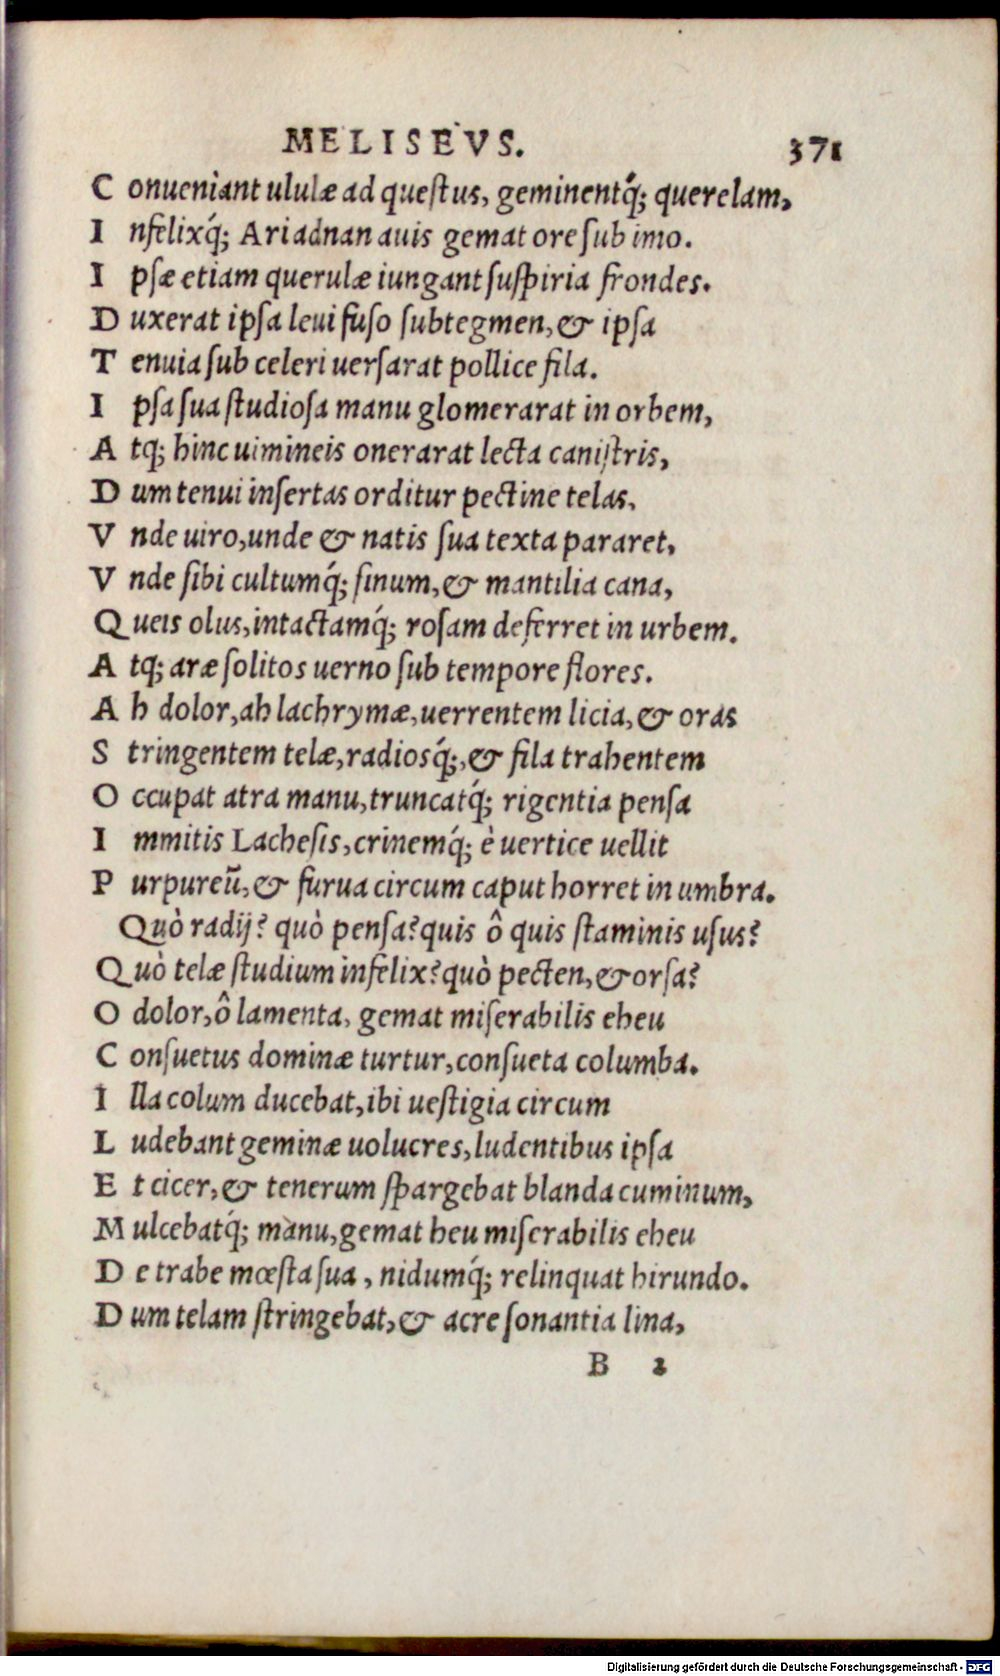 MELISEVS. 371
C onueniant ululæ ad questus, geminentq́; querelam,
I nfelixq́; Ariadnan auis gemat ore sub imo.
I psæ etiam querulæ iungant suspiria frondes.
D uxerat ipsa leui fuso subtegmen, & ipsa
T enuia sub celeri uersarat pollice fila.
I psa sua studiosa manu glomerarat in orbem,
A tq; hinc uimineis onerarat lecta canistris,
D um tenui insertas orditur pectine telas,
V nde uiro, unde & natis sua texta pararet,
V nde sibi cultumq́; sinum, & mantilia cana,
Q ueis olus, intactamq́; rosam deferret in urbem.
A tq; aræ solitos uerno sub tempore flores.
A h dolor, ah lachrymæ, uerrentem licia, & oras
S tringentem telæ, radiosq́;, & fila trahentem
O ccupat atra manu, truncatq́; rigentia pensa
I mmitis Lachesis, crinemq́; è uertice uellit
P urpureū, & furua circum caput horret in umbra.
Quò radij? quò pensa? quis ô quis staminis usus?
Q uò telæ studium infelix? quò pecten, & orsa?
O dolor, ô lamenta, gemat miserabilis eheu
C onsuetus dominæ turtur, consueta columba.
I lla colum ducebat, ibi uestigia circum
L udebant geminæ uolucres, ludentibus ipsa
E t cicer, & tenerum spargebat blanda cuminum,
M ulcebatq́; manu, gemat heu miserabilis eheu
D e trabe mœsta sua, nidumq́; relinquat hirundo.
D um telam stringebat, & acre sonantia lina,
B 2
Digitalisierung gefördert durch die Deutsche Forschungsgemeinschaft - DFG